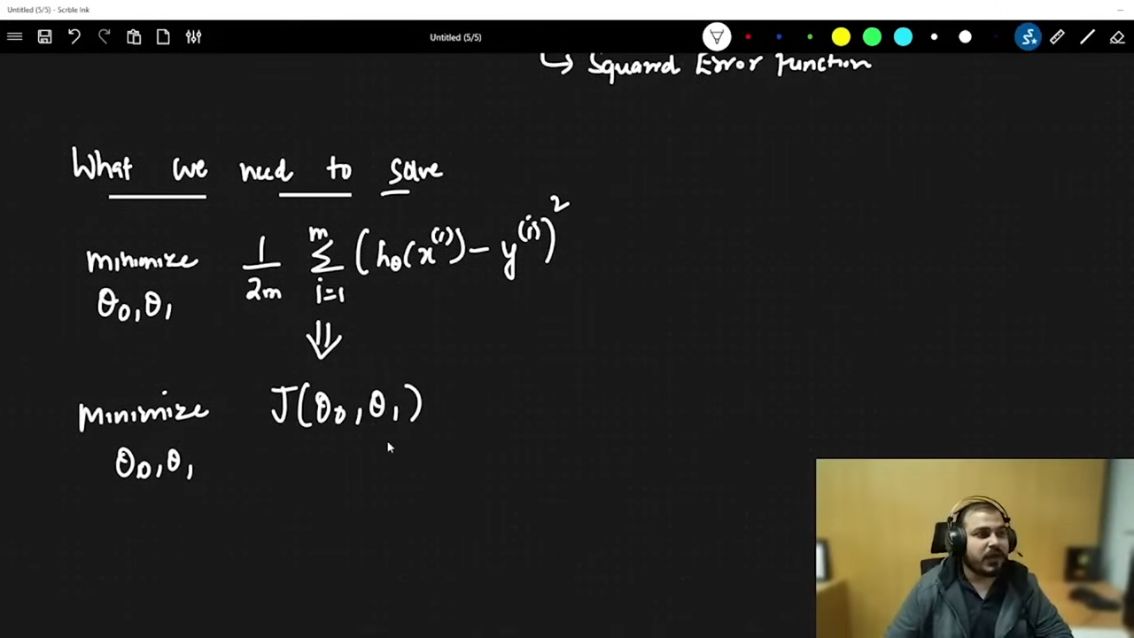 Untitled (5/5) - Scrble Ink
Untitled (5/5)
↳ Squared Error function
What we need to solve
minimize 1/2m m Σ i=1 (hθ(x^(i)) - y^(i))^2
θ0, θ1
⇓
minimize J(θ0, θ1)
θ0, θ1